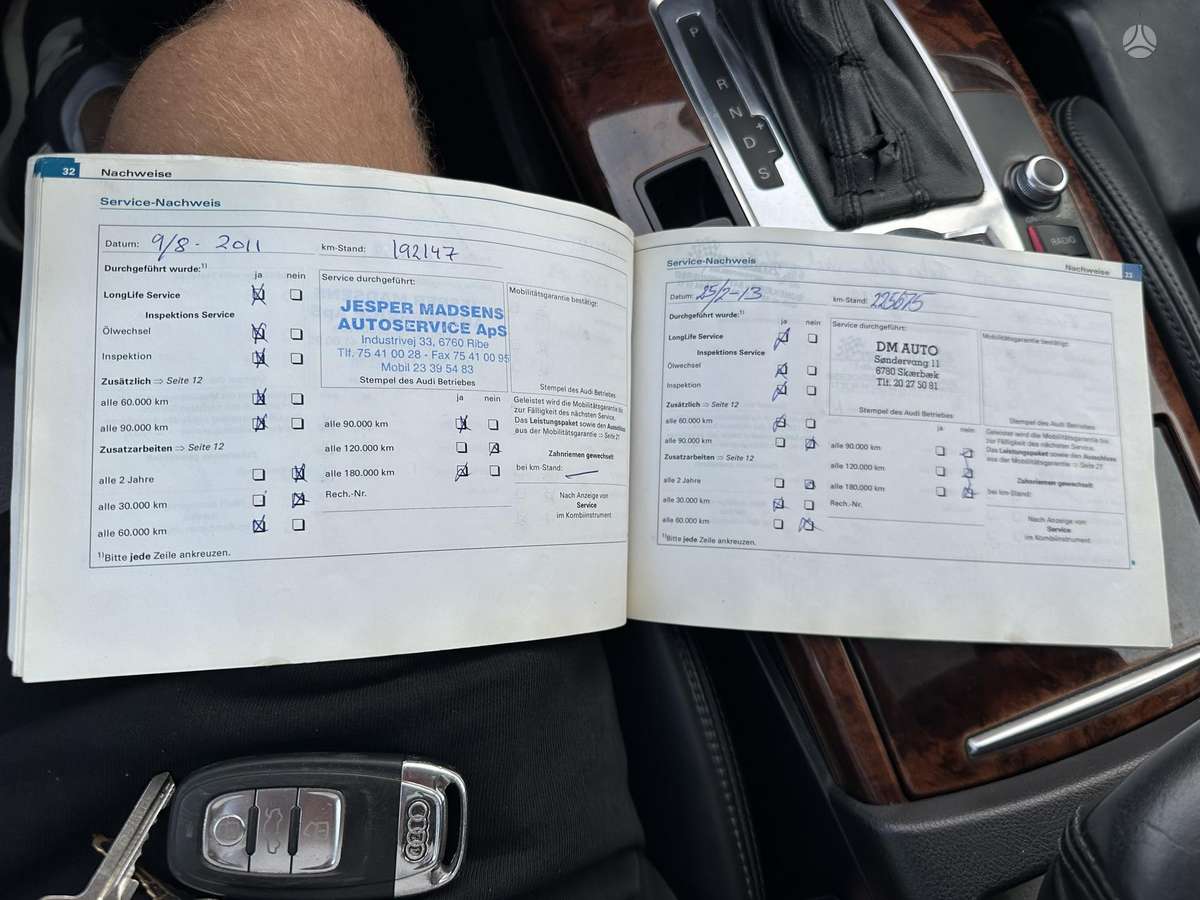 32 Nachweise
Service-Nachweis
Datum: 9/8 - 2011 km-Stand: 192147
Durchgeführt wurde:1)
ja nein
LongLife Service
Inspektions Service
Ölwechsel
Inspektion
Zusätzlich ⇒ Seite 12
alle 60.000 km
alle 90.000 km
Zusatzarbeiten ⇒ Seite 12
alle 2 Jahre
alle 30.000 km
alle 60.000 km
1)Bitte jede Zeile ankreuzen.
Service durchgeführt:
JESPER MADSENS
AUTOSERVICE ApS
Industrivej 33, 6760 Ribe
Tlf. 75 41 00 28 - Fax 75 41 00 95
Mobil 23 39 54 83
Stempel des Audi Betriebes
ja nein
alle 90.000 km
alle 120.000 km
alle 180.000 km
Rech.-Nr.
Mobilitätsgarantie bestätigt:
Stempel des Audi Betriebes
Geleistet wird die Mobilitätsgarantie bis
zur Fälligkeit des nächsten Service.
Das Leistungspaket sowie den Ausschluss
aus der Mobilitätsgarantie ⇒ Seite 21
Zahnriemen gewechselt
bei km-Stand:
Nach Anzeige von
Service
im Kombiinstrument
Nachweise 33
Service-Nachweis
Datum: 25/2-13 km-Stand: 225675
Durchgeführt wurde:1)
ja nein
LongLife Service
Inspektions Service
Ölwechsel
Inspektion
Zusätzlich ⇒ Seite 12
alle 60.000 km
alle 90.000 km
Zusatzarbeiten ⇒ Seite 12
alle 2 Jahre
alle 30.000 km
alle 60.000 km
1)Bitte jede Zeile ankreuzen.
Service durchgeführt:
DM AUTO
Søndervang 11
6780 Skærbæk
Tlf. 20 27 50 81
Stempel des Audi Betriebes
ja nein
alle 90.000 km
alle 120.000 km
alle 180.000 km
Rech.-Nr.
Mobilitätsgarantie bestätigt:
Stempel des Audi Betriebes
Geleistet wird die Mobilitätsgarantie bis
zur Fälligkeit des nächsten Service.
Das Leistungspaket sowie den Ausschluss
aus der Mobilitätsgarantie ⇒ Seite 21
Zahnriemen gewechselt
bei km-Stand:
Nach Anzeige von
Service
im Kombiinstrument
P
R
N
D
+
-
S
RADIO